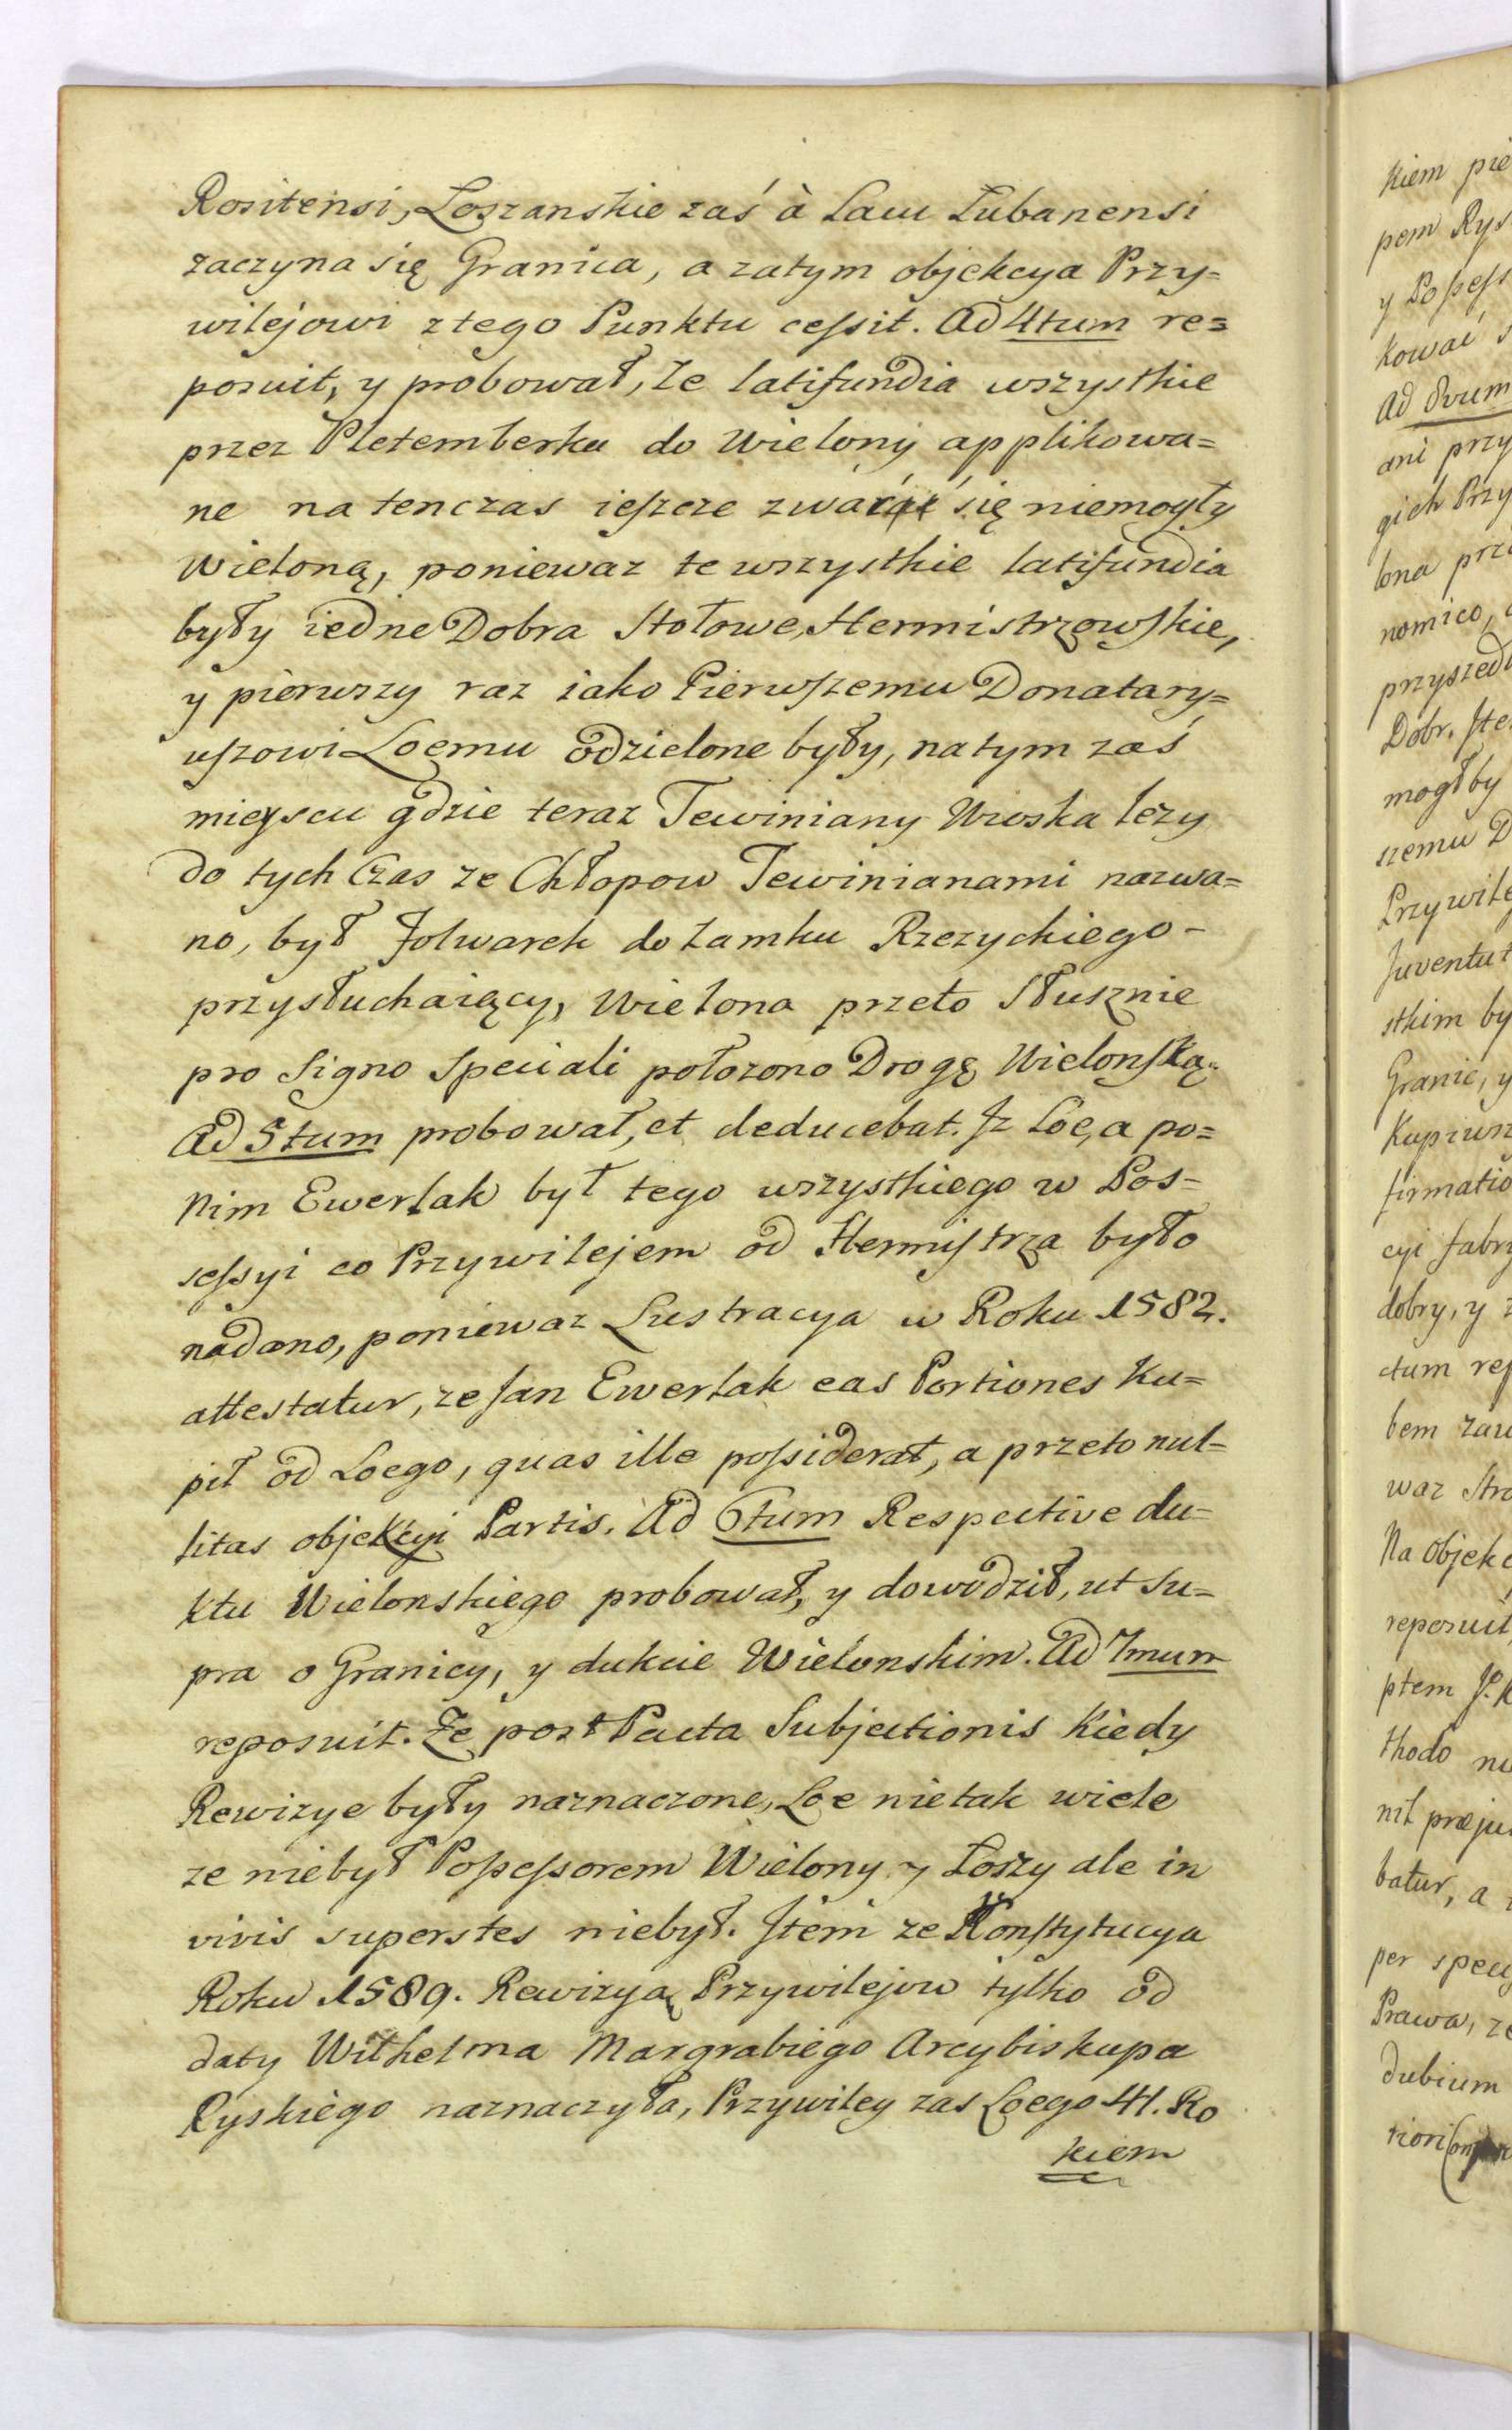 Rositensi, Loszanskie zaś à Lacu Lubanensi
zaczyna się Granica, a zatym objekcya Przy=
wilejowi z tego Punktu cessit. Ad 4tum re=
posuit, y probował, że latifundia wszystkie
przez Pletemberka do Wielony applikowa=
ne na tenczas ieszcze zwać się niemogły
Wieloną, poniewaz te wszystkie latifundia
były iedne Dobra Stołowe, Hermistrzowskie,
y pierwszy raz iako Pierwszemu Donatary=
uszowi Loemu odzielone były, na tym zaś
mieyscu gdzie teraz Tewiniany Wioska lezy
do tych Czas ze Chłopow Tewinianami nazwa=
no, był Folwarek do Zamku Rzezyckiego-
przysłuchaiący, Wielona przeto Słusznie
pro Signo Speciali połozono Drogę Wielonską.
Ad 5tum probował, et deducebat. Iz Loe, a po=
nim Ewerlak był tego wszystkiego w Pos=
sessyi co Przywilejem od Hermistrza było
nadano, poniewaz Lustracya w Roku 1582.
attestatur, ze Jan Ewerlak eas Portiones Ku=
pił od Loego, quas ille possiderat, a przeto nul=
litas objekcyi Partis. Ad 6tum Respective du=
ktu Wielonskiego probował, y dowodził, ut su=
pra o Granicy, y dukcie Wielonskim. Ad 7mum
reposuit. Ze post Pacta Subjectionis Kiedy
Rewizye były naznaczone, Loe nietak wiele
ze niebył Possessorem Wielony y Loszy ale in
vivis superstes niebył. Item ze Konstytucya
Roku 1589. Rewizyą Przywilejow tylko od
daty Wilhelma Margrabiego Arcybiskupa
Ryskiego naznaczyła, Przywiley zas Loego 41. Ro
kiem
kiem pie
pem Rys
y Possess
kować s
Ad 8vum
ani przy
gich Przy
lona prze
nomico,
przyszedł
Dobr. Ste
mogłby
szemu D
Przywile
Juventut
stkim by
Granic, y
Kupiws
firmatio
cyi fabry
dobry, y z
ctum rep
bem zaw
waz Stro
Na Objekc
reposuit
ptem
thodo nu
nil præju
batur, a
per specy
Prawa, ze
dubium
riori